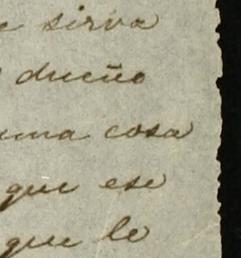 e sirva
dueño
una cosa
que ese
que le